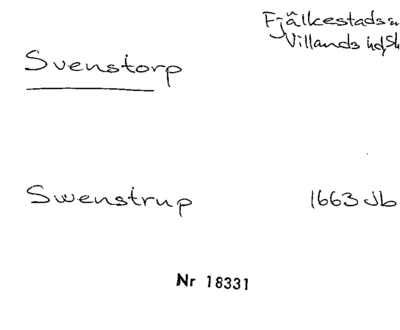 Fjälkestads sn
Villands hd, Sk
Svenstorp
Swenstrup 1663 Jb
Nr 18331